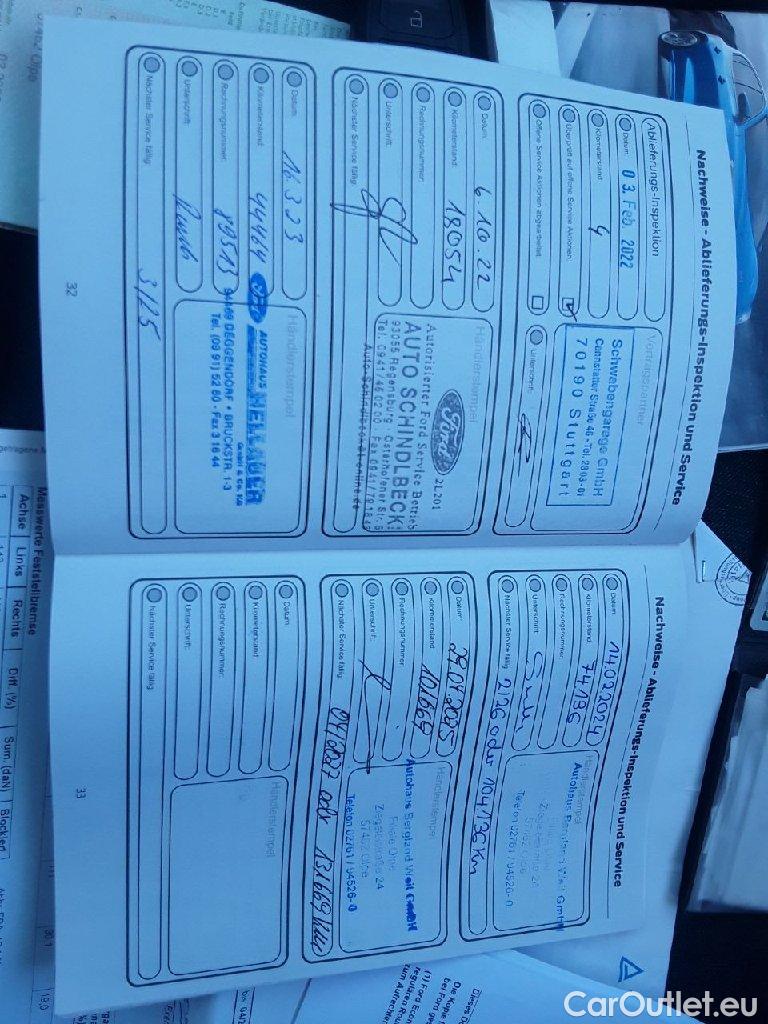 Nachweise - Ablieferungs-Inspektion und Service
Ablieferungs-Inspektion
Datum:
03. Feb. 2022
Kilometerstand:
4
Überprüft auf offene Service Aktionen:
Offene Service Aktionen abgearbeitet:
Vertragspartner
Schwabengarage GmbH
Cannstatter Straße 46 • Tel. 2803-01
70190 Stuttgart
Unterschrift:
Datum:
6.10.22
Kilometerstand:
18054
Rechnungsnummer:
Unterschrift:
Nächster Service fällig:
Händlerstempel
Ford
2L201
Autorisierter Ford Service Betrieb
AUTO SCHINDLBECK
93055 Regensburg · Osterhofener Str.
Tel. 0941/46 02 00 · Fax 0941/791
Auto-Schindlbeck at-online.de
Datum:
16.3.23
Kilometerstand:
44464
Rechnungsnummer:
89513
Unterschrift:
Nächster Service fällig:
3/25
Händlerstempel
Ford
AUTOHAUS
HELLAUER
GmbH & Co. KG
94469 DEGGENDORF • BRUCKSTR. 1-3
Tel. (09 91) 52 60 · Fax 3 16 44
32
Nachweise - Ablieferungs-Inspektion und Service
Datum:
14.02.2024
Kilometerstand:
74136
Rechnungsnummer:
Unterschrift:
Nächster Service fällig:
2/26 oder 104136 Km
Händlerstempel
Autohaus Bergland Weil GmbH
Telefon 02761 / 94526-0
Datum:
24.04.2025
Kilometerstand:
101669
Rechnungsnummer:
Unterschrift:
Nächster Service fällig:
04/2027 oder 131669
Händlerstempel
Autohaus Bergland Weil GmbH
Filiale Olpe
Ziegeleistraße 24
57462 Olpe
Telefon 02761 / 94526-0
Datum:
Kilometerstand:
Rechnungsnummer:
Unterschrift:
Nächster Service fällig:
Händlerstempel
33
Messwerte Feststellbremse
Achse
Links
Rechts
Diff. (%)
Sum. (daN
Blockiert
CarOutlet.eu